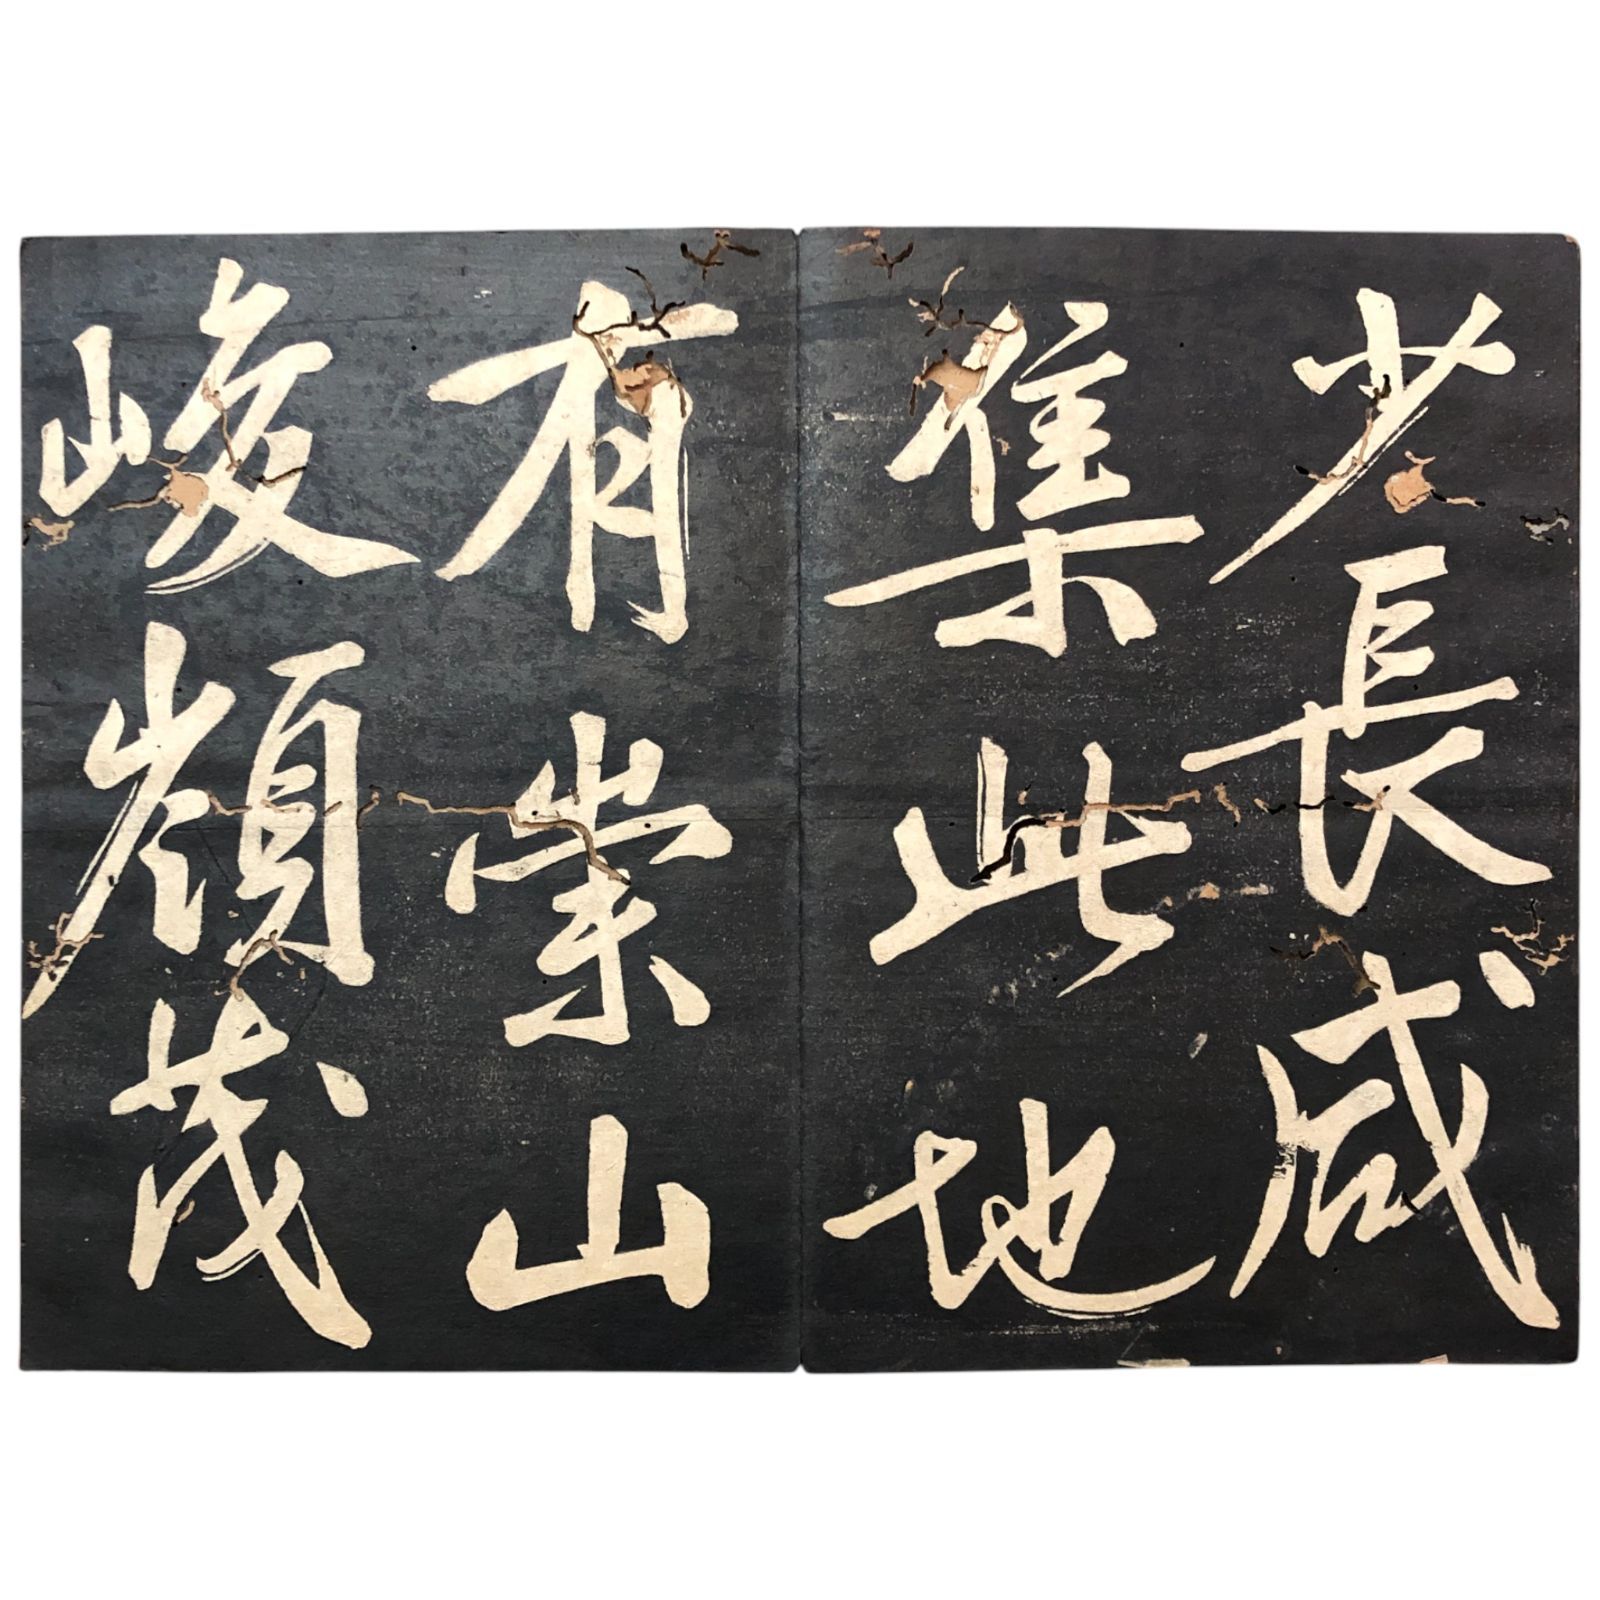 少長咸
集此地
有崇山
峻嶺茂